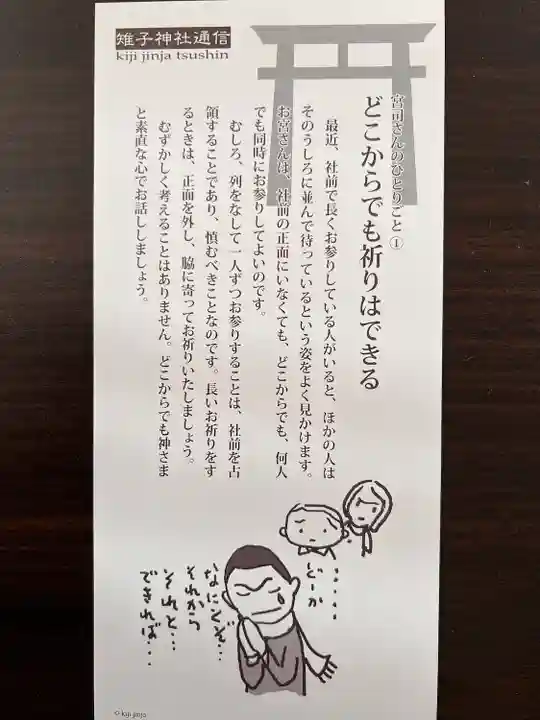 雉子神社通信
kiji jinja tsushin
宮司さんのひとりごと①
どこからでも祈りはできる
最近、社前で長くお参りしている人がいると、ほかの人は
そのうしろに並んで待っているという姿をよく見かけます。
お宮さんは、社前の正面にいなくても、どこからでも、何人
でも同時にお参りしてよいのです。
むしろ、列をなして一人ずつお参りすることは、社前を占
領することであり、慎むべきことなのです。長いお祈りをす
るときは、正面を外し、脇に寄ってお祈りいたしましょう。
むずかしく考えることはありません。どこからでも神さま
と素直な心でお話ししましょう。
・・・・・
どーか
なにとぞ・・
それから
それと・・・
できれば・・・
© kiji jinja